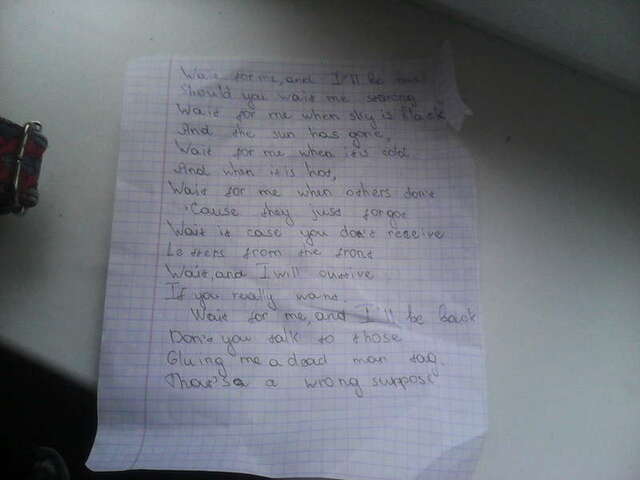 Wait for me, and I'll be
Should you wait me strong
Wait for me when sky is black
And the sun has gone,
Wait for me when it's cold
And when it is hot,
Wait for me when others don't
'Cause they just forgot
Wait is case you don't receive
Letters from the front
Wait, and I will outlive
If you really want.
Wait for me, and I'll be back
Don't you talk to those
Gluing me a dead man tag.
That's a a wrong suppose